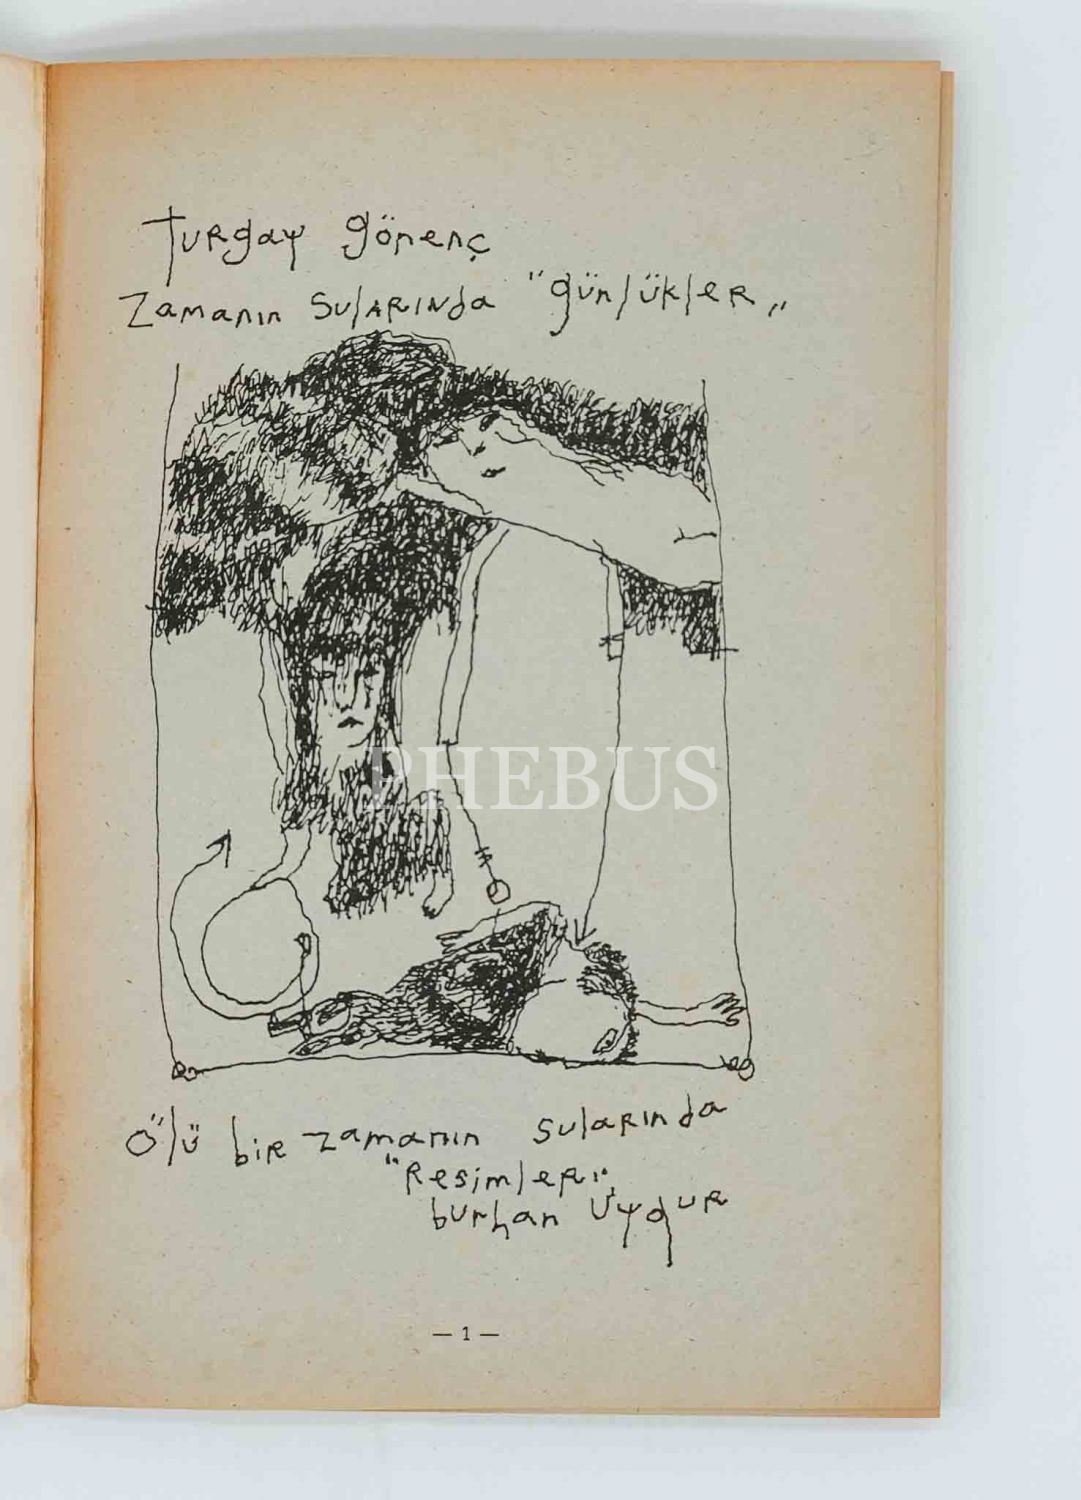 Turgay Gönenç
Zamanın Sularında "Günlükler"
PHEBUS
Ölü bir zamanın sularında
"Resimler"
burhan Uygur
— 1 —